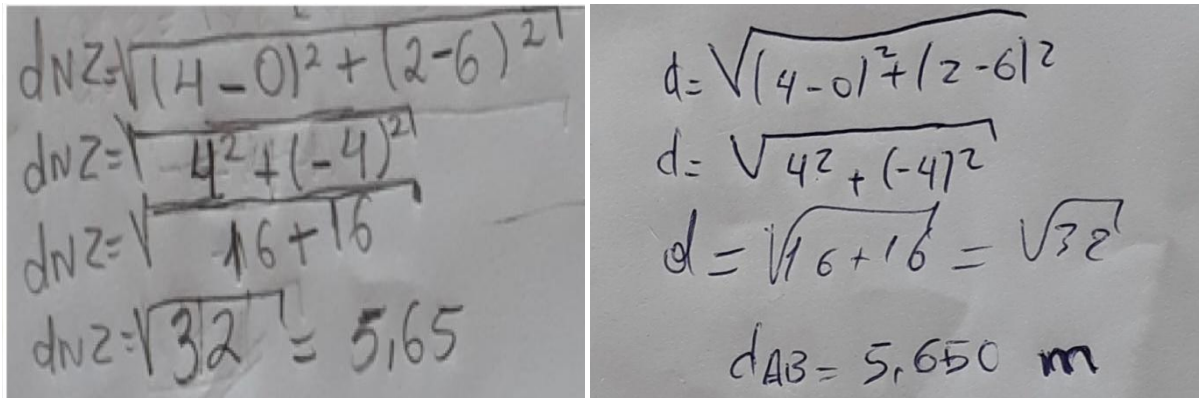 dNZ=√(4-0)²+(2-6)²
dNZ=√4²+(-4)²
dNZ=√16+16
dNZ=√32 = 5,65
d=√(4-0)²+(2-6)²
d=√4²+(-4)²
d=√16+16 = √32
dAB= 5,650 m